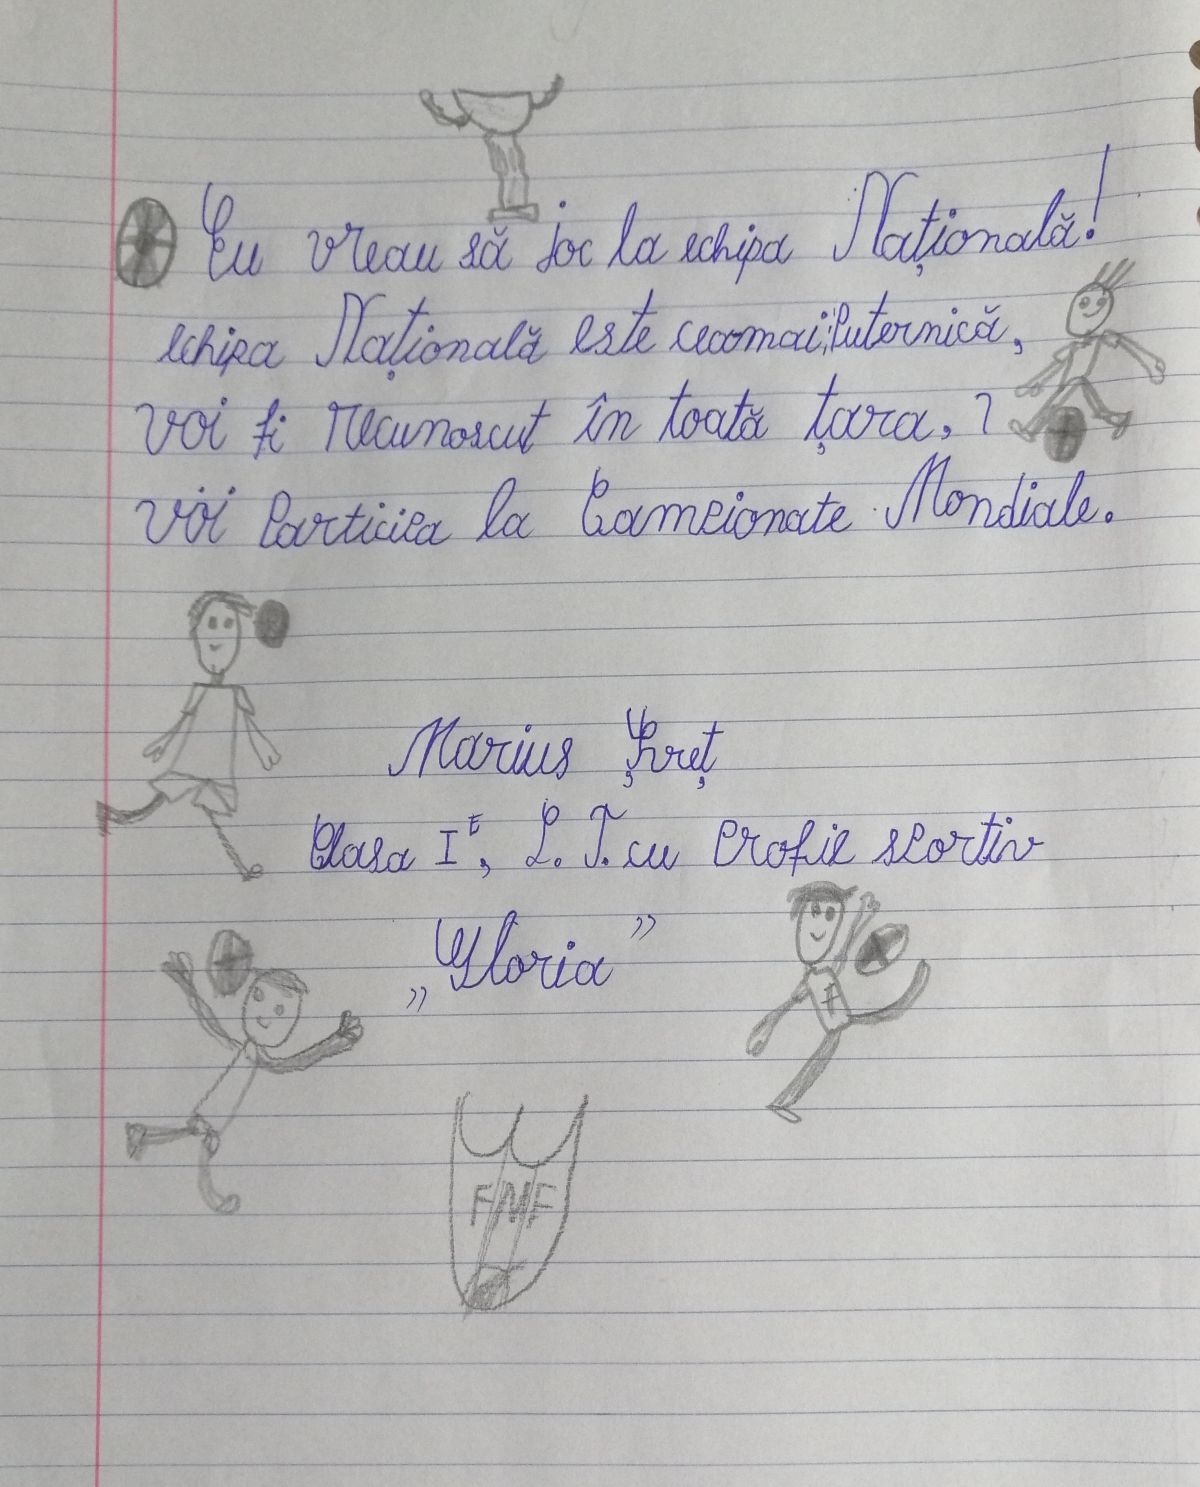 Eu vreau să joc la echipa Națională!
echipa Națională este ceamai Puternică,
voi fi recunoscut în toată țara,
voi Participa la Campionate Mondiale.
Marius
Clasa I E, L. T. cu Profil sportiv
„Gloria”
FMF